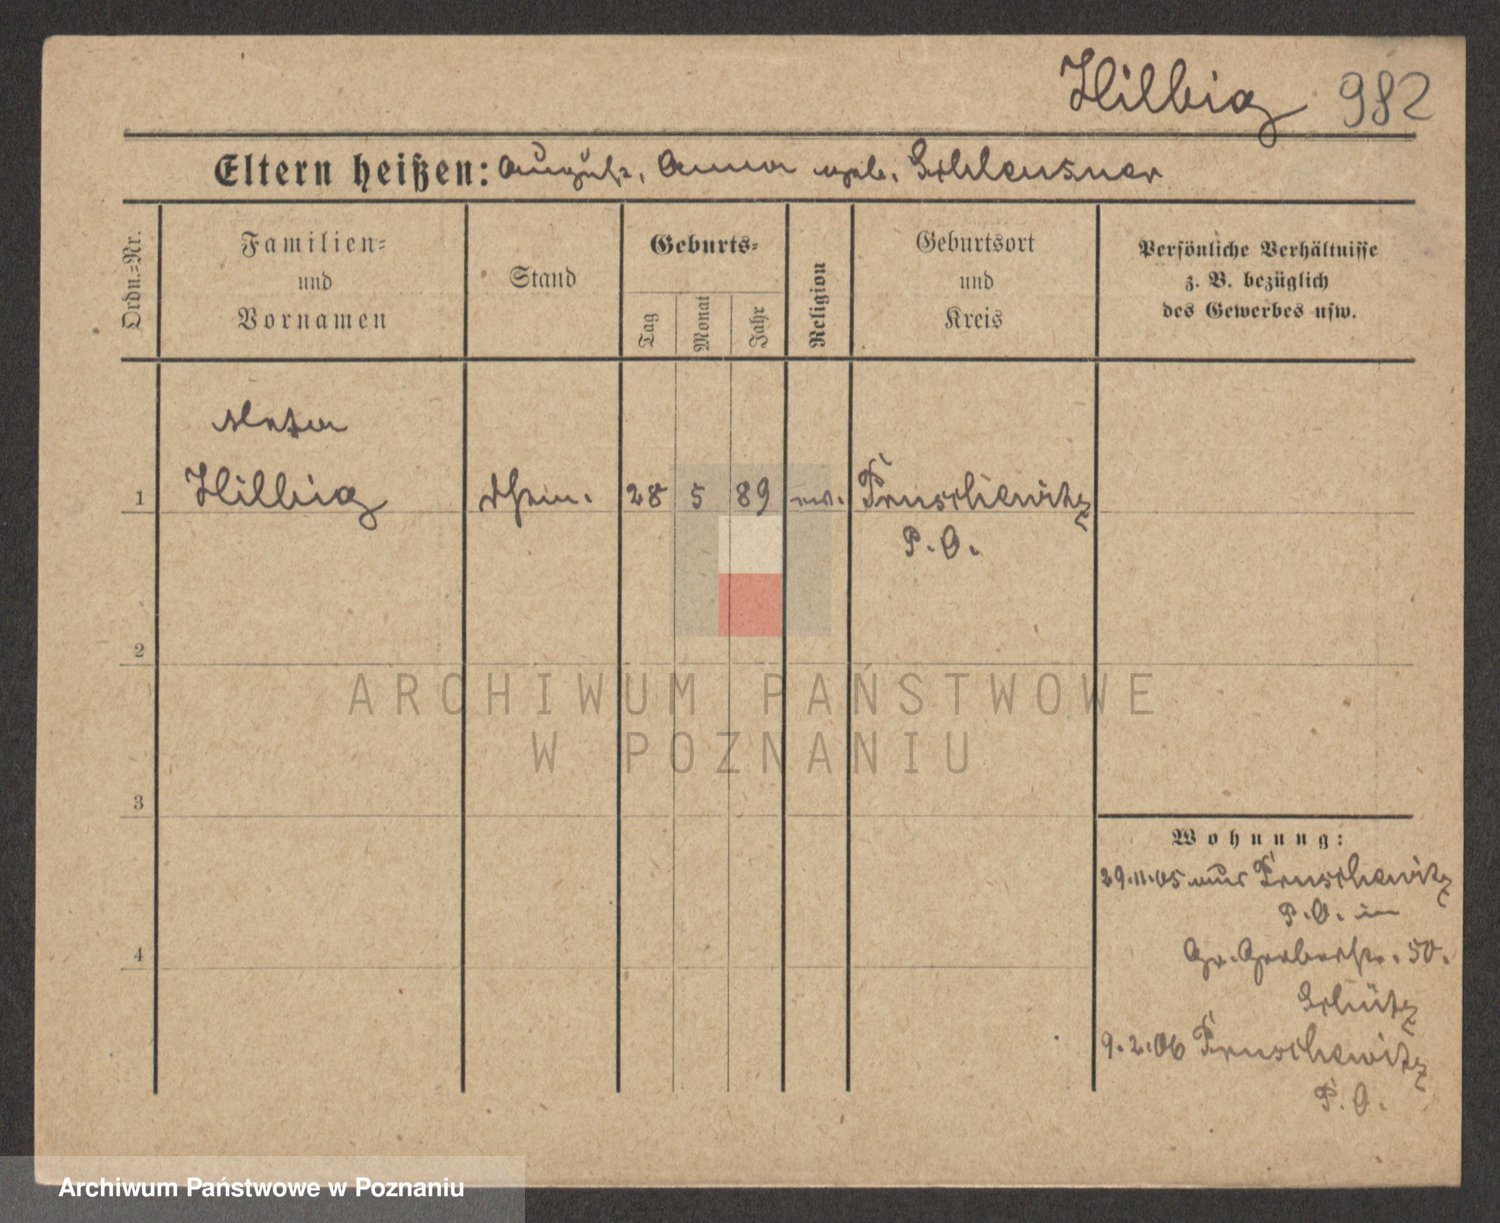 Hilbig 982
Eltern heißen: August, Anna geb. Schleusner
Ordn.=Nr.
Familien=
und
Vornamen
Stand
Geburts=
Tag
Monat
Jahr
Religion
Geburtsort
und
Kreis
Persönliche Verhältnisse
z. B. bezüglich
des Gewerbes usw.
Meta
1 Hilbig 28 5 89 ev. Pruschewitz
P. O.
2
ARCHIWUM PAŃSTWOWE
W POZNANIU
3
Wohnung:
29.11.05 aus Pruschewitz
P. O. in
Gr. Gerberstr. 50.
Schütz
4
9.2.06 Pruschewitz
P. O.
Archiwum Państwowe w Poznaniu